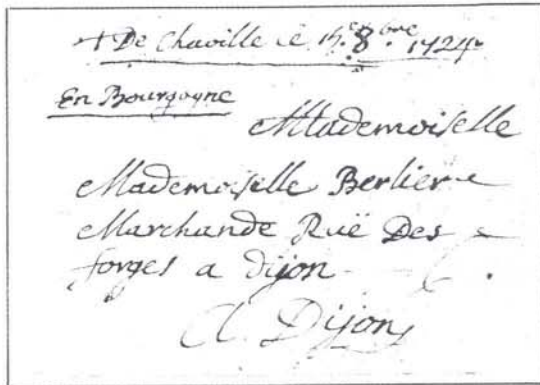 + De Chaville ce 15.e 8.bre 1724
En Bourgogne
Mademoiselle
Mademoiselle Berlier
Marchande Ruë Des
forges a dijon
A Dijon